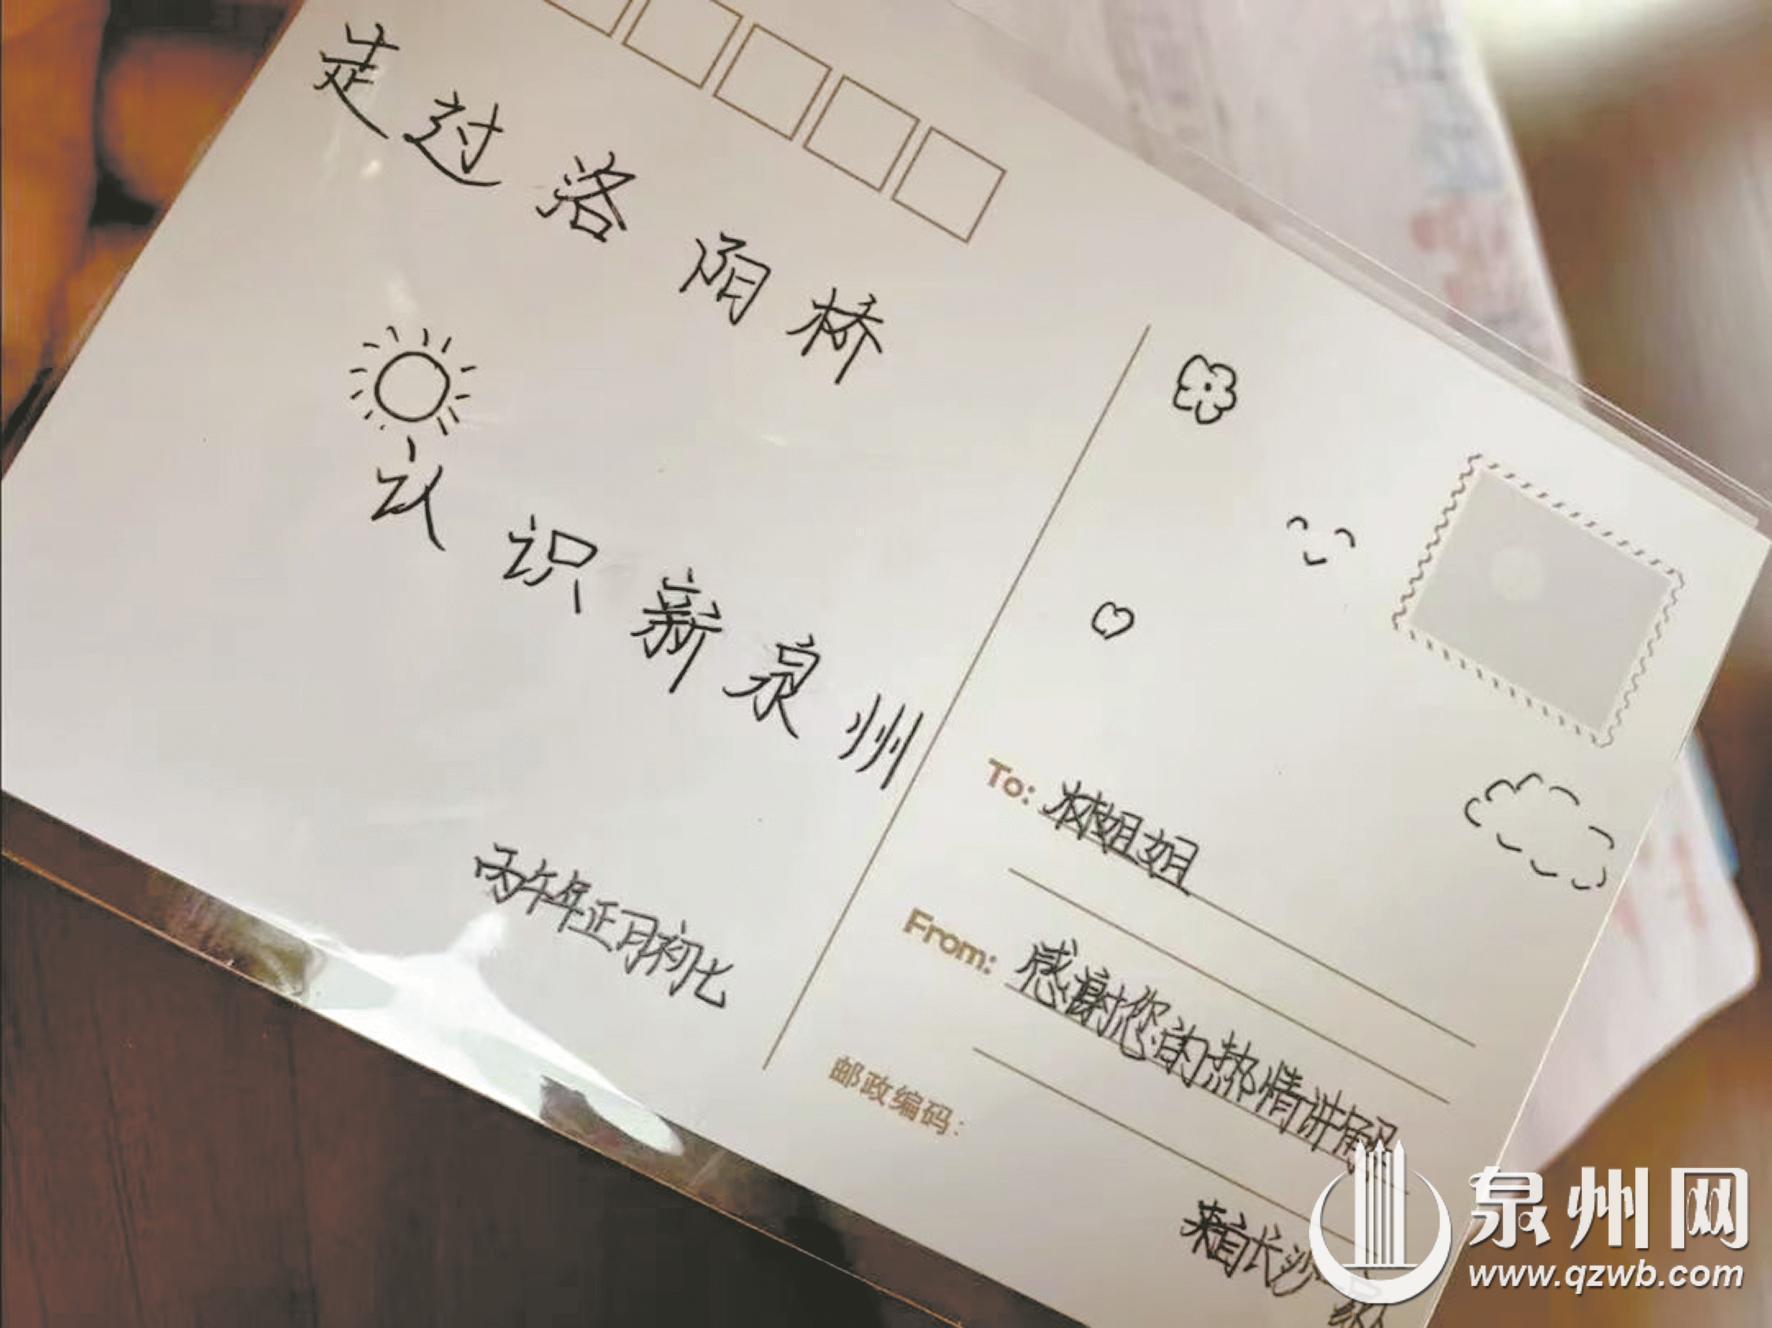 走过洛阳桥
认识新泉州
丙午年正月初七
To: 林姐姐
From: 感谢您的热情讲解
邮政编码:
来自长沙
泉州网
www.qzwb.com